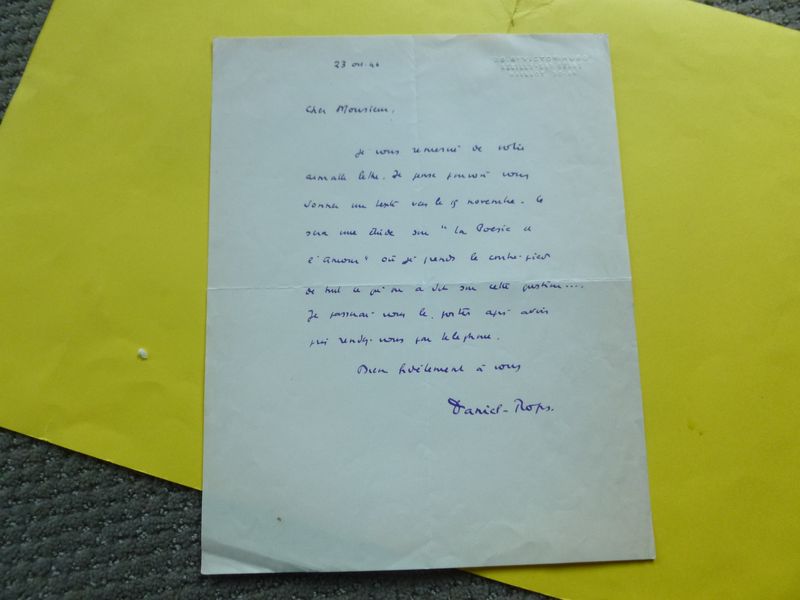 23 oct. 46
Cher Monsieur,
Je vous remercie de votre
aimable lettre. Je pense pouvoir vous
donner un texte vers le 15 novembre. Ce
sera une étude sur "la Poésie et
l'Amour" où je prends le contre-pied
de tout ce qu'on a dit sur cette question....
Je passerai vous le porter après avoir
pris rendez-vous par téléphone.
Bien fidèlement à vous
Daniel-Rops.